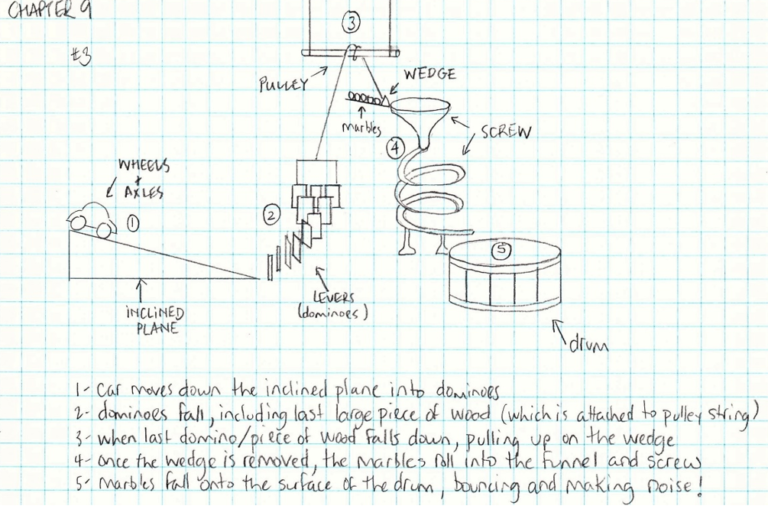 CHAPTER 9
#3
③
PULLEY
WEDGE
marbles
④
SCREW
WHEELS
+
AXLES
①
②
⑤
LEVERS
(dominoes)
INCLINED
PLANE
drum
1- car moves down the inclined plane into dominoes
2- dominoes fall, including last large piece of wood (which is attached to pulley string)
3- when last domino/piece of wood falls down, pulling up on the wedge
4- once the wedge is removed, the marbles roll into the funnel and screw
5- marbles fall onto the surface of the drum, bouncing and making noise!